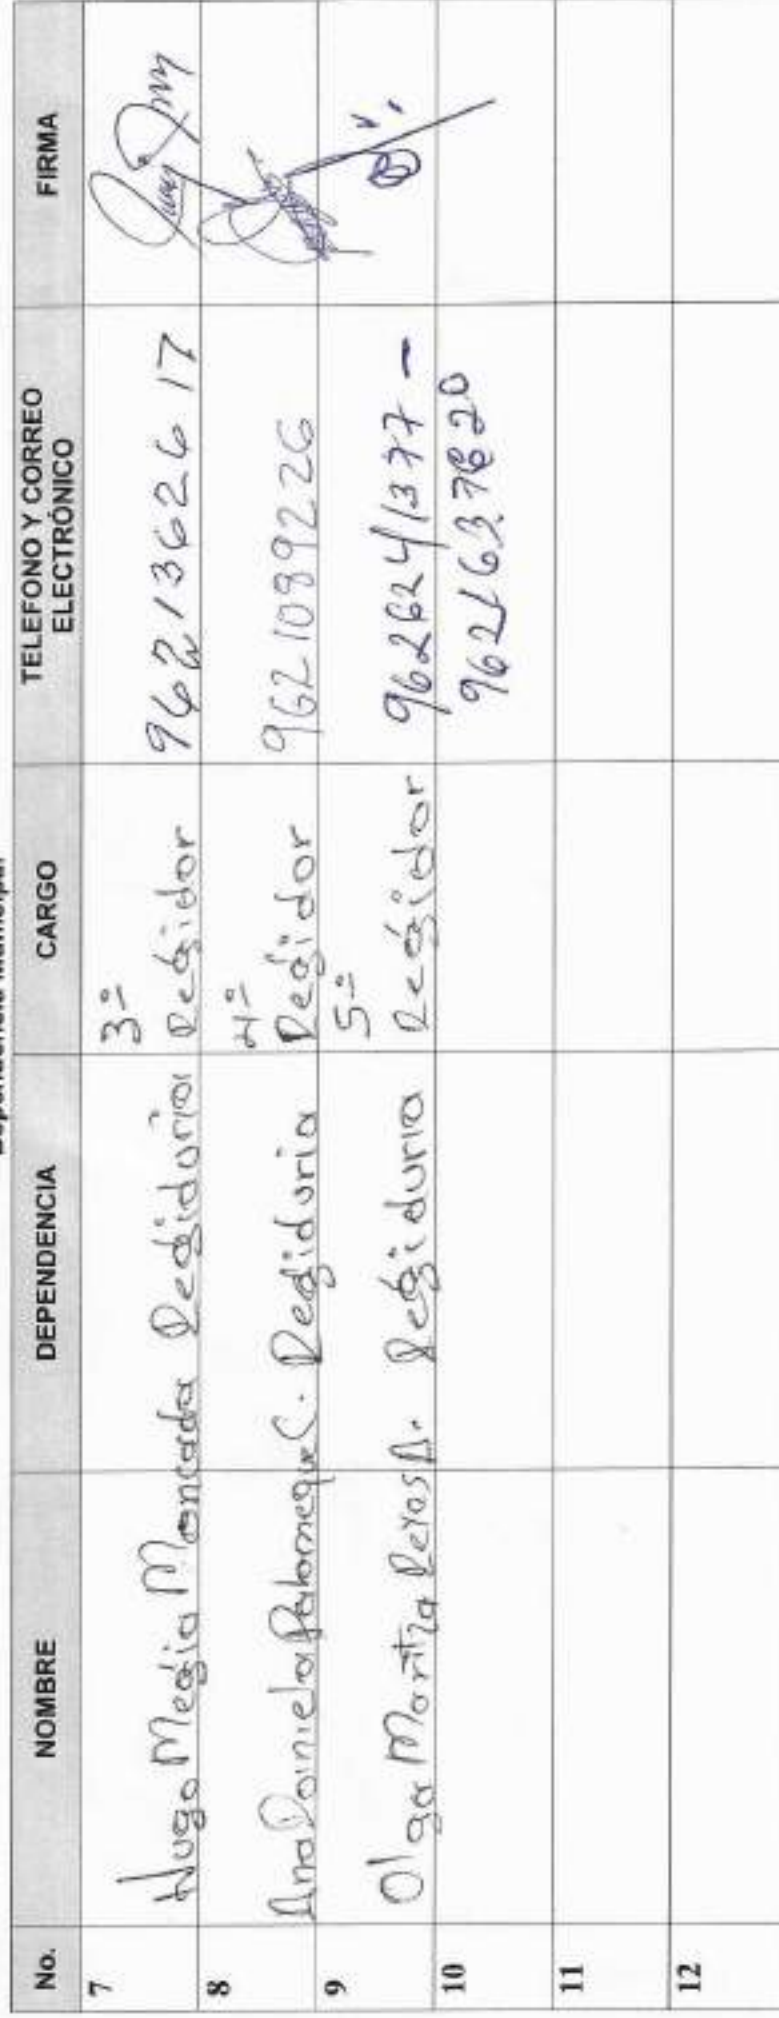 No. NOMBRE DEPENDENCIA CARGO TELEFONO Y CORREO ELECTRÓNICO FIRMA
7 Hugo Mejia Moncada Regiduria 3º Regidor 9621362617
8 Ana Daniela Palomeque C. Regiduria 4º Regidor 9621089226
9 Olga Maritza Reyes A. Regiduria 5º Regidor 9626241377 -
10 9621637620
11
12